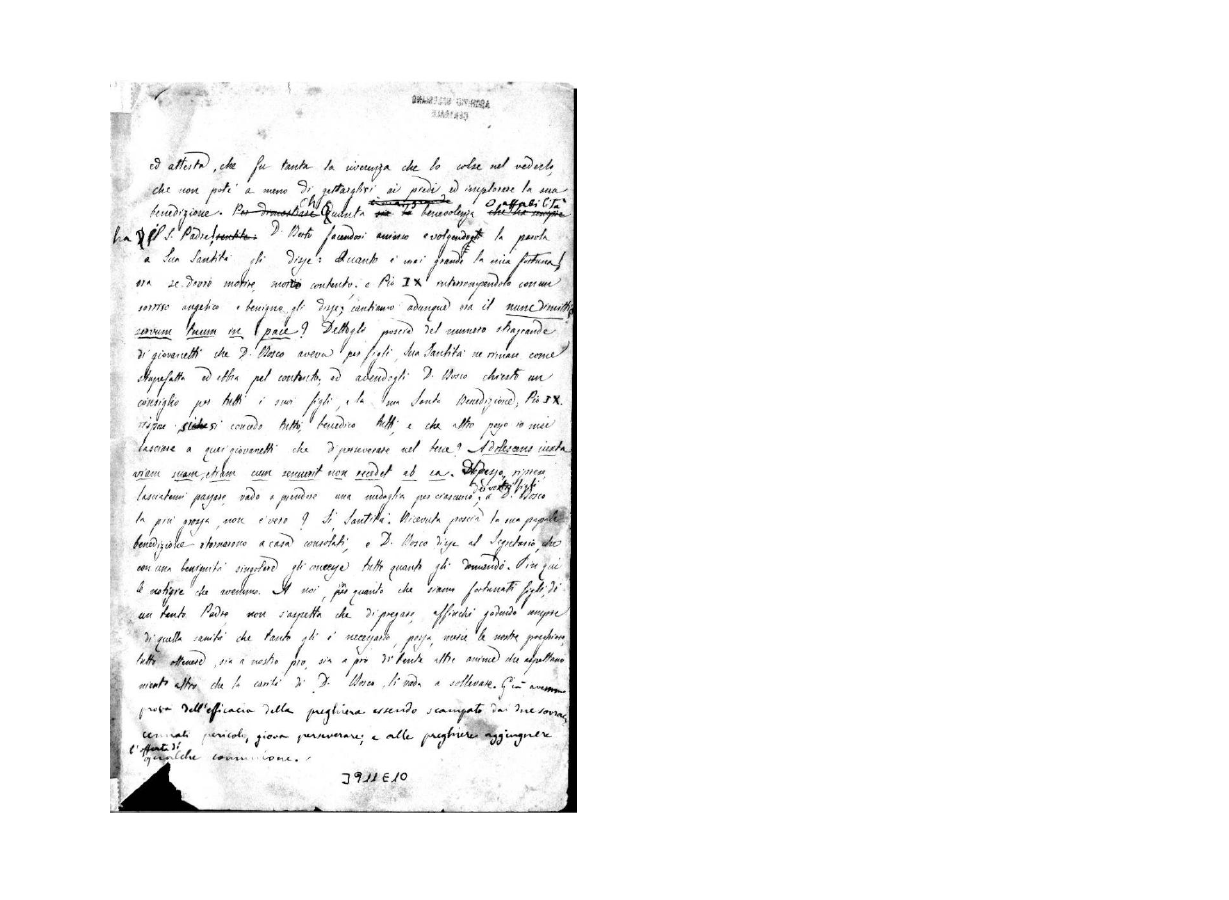 ARCHIVIO SALESIANO
CENTRALE
ed attesta, che fu tanta la riverenza che lo colse nel vederlo,
che non poté a meno di gettarglisi ai piedi ed implorare la sua
benedizione. Per dimostrare Oh Quanta benevolenza o affabilità che ha sempre
ha il S. Padre! D. Bosco facendosi animo e volgendogli la parola
a Sua Santità gli disse: Quanto è mai grande la mia fortuna!
ora se dovrò morire, morirò contento: e Pio IX interrompendolo con un
sorriso angelico e benigno gli disse; cantiamo adunque ora il nunc dimittis
servum tuum in pace? Dettogli poscia del numero stragrande
di giovanetti che D. Bosco aveva per figli, Sua Santità ne rimase come
stupefatta ed ebbra pel contento, ed avendogli D. Bosco chiesto un
consiglio per tutti i suoi figli, e la sua Santa Benedizione, Pio IX.
rispose concedo tutti, benedico tutti, e che altro posso io mai
lasciare a quei giovanetti che di perseverare nel bene? Adolescens iuxta
viam suam etiam cum senuerit non recedet ab ea. Di spesso,
ai vostri figli
lasciatemi passare, vado a prendere una medaglia per ciascuno; a D. Bosco
la più grossa, non è vero? Sì, Santità. Ricevuta poscia la sua papale
benedizione ritornarono a casa consolati, e D. Bosco disse al Segretario, che
con una benignità singolare gli concesse tutto quanto gli domandò. Fin qui
le notizie che avemmo. A noi, per quanto che siamo fortunati figli di
un tanto Padre, non s'aspetta che di pregare, affinché godendo sempre
di quella sanità che tanto gli è necessaria, possa, mercè le nostre preghiere,
tutto ottenere, sia a nostro pro, sia a pro di tante altre anime che aspettano
nient'altro che la carità di D. Bosco, li vada a sollevare. Già avemmo
prova dell'efficacia della preghiera essendo scampato da due sovrac-
cennati pericoli, giova perseverare; e alle preghiere aggiugnere
l'offerta di
qualche comunione.
3911E10